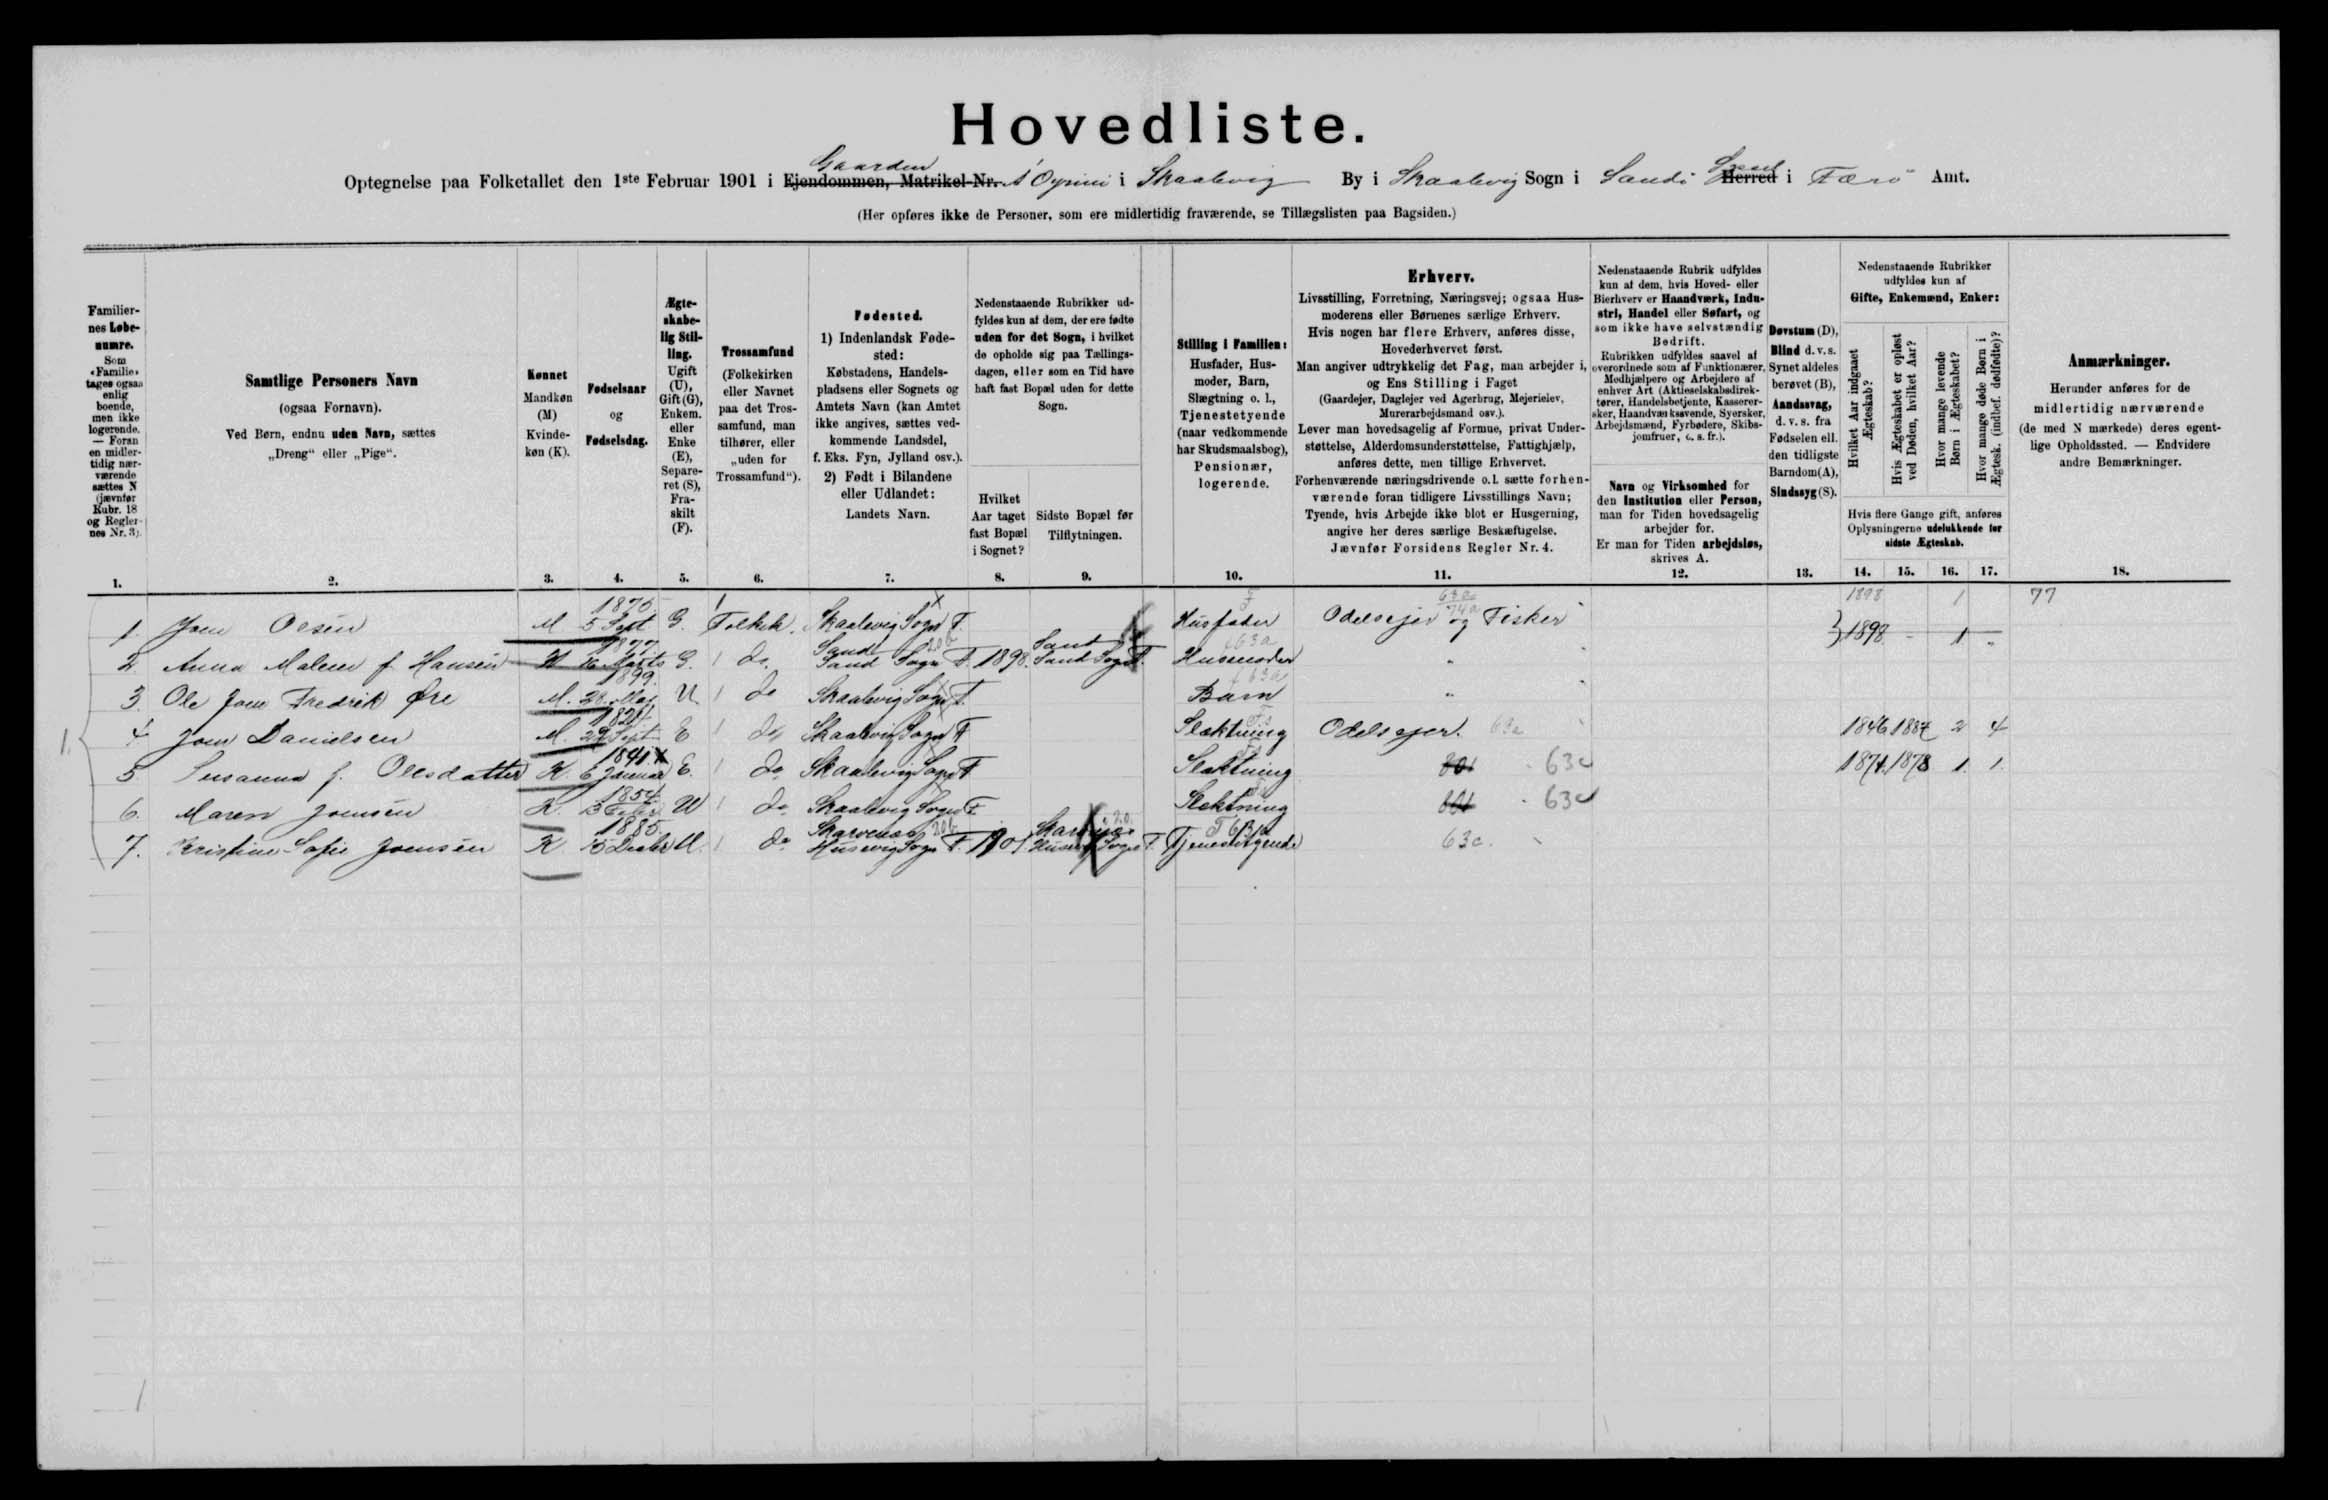 Hovedliste.
Gaarden Syssel
Optegnelse paa Folketallet den 1ste Februar 1901 i Ejendommen, Matrikel-Nr. Á Oyrini i Skaalevig By i Skaalevig Sogn i Sandö Herred i Færö Amt.
(Her opføres ikke de Personer, som ere midlertidig fraværende, se Tillægslisten paa Bagsiden.)
Familier-
nes Løbe-
numre.
Som
«Familie»
tages ogsaa
enlig
boende,
men ikke
logerende.
— Foran
en midler-
tidig nær-
værende
sættes N
(jævnfør
Rubr. 18
og Regler-
nes Nr. 3).
1.
Samtlige Personers Navn
(ogsaa Fornavn).
Ved Børn, endnu uden Navn, sættes
„Dreng“ eller „Pige“.
2.
Kønnet
Mandkøn
(M)
Kvinde-
køn (K).
3.
Fødselsaar
og
Fødselsdag.
4.
Ægte-
skabe-
lig Stil-
ling.
Ugift
(U),
Gift (G),
Enkem.
eller
Enke
(E),
Separe-
ret (S),
Fra-
skilt
(F).
5.
Trossamfund
(Folkekirken
eller Navnet
paa det Tros-
samfund, man
tilhører, eller
„uden for
Trossamfund“).
6.
Fødested.
1) Indenlandsk Føde-
sted:
Købstadens, Handels-
pladsens eller Sognets og
Amtets Navn (kan Amtet
ikke angives, sættes ved-
kommende Landsdel,
f. Eks. Fyn, Jylland osv.).
2) Født i Bilandene
eller Udlandet:
Landets Navn.
7.
Nedenstaaende Rubrikker ud-
fyldes kun af dem, der ere fødte
uden for det Sogn, i hvilket
de opholde sig paa Tællings-
dagen, eller som en Tid have
haft fast Bopæl uden for dette
Sogn.
Hvilket
Aar taget
fast Bopæl
i Sognet?
8.
Sidste Bopæl før
Tilflytningen.
9.
Stilling i Familien:
Husfader, Hus-
moder, Barn,
Slægtning o. l.,
Tjenestetyende
(naar vedkommende
har Skudsmaalsbog),
Pensionær,
logerende.
10.
Erhverv.
Livsstilling, Forretning, Næringsvej; ogsaa Hus-
moderens eller Børnenes særlige Erhverv.
Hvis nogen har flere Erhverv, anføres disse,
Hovederhvervet først.
Man angiver udtrykkelig det Fag, man arbejder i,
og Ens Stilling i Faget
(Gaardejer, Daglejer ved Agerbrug, Mejerielev,
Murerarbejdsmand osv.).
Lever man hovedsagelig af Formue, privat Under-
støttelse, Alderdomsunderstøttelse, Fattighjælp,
anføres dette, men tillige Erhvervet.
Forhenværende næringsdrivende o. l. sætte forhen-
værende foran tidligere Livsstillings Navn;
Tyende, hvis Arbejde ikke blot er Husgerning,
angive her deres særlige Beskæftigelse.
Jævnfør Forsidens Regler Nr. 4.
11.
Nedenstaaende Rubrik udfyldes
kun af dem, hvis Hoved- eller
Bierhverv er Haandværk, Indu-
stri, Handel eller Søfart, og
som ikke have selvstændig
Bedrift.
Rubrikken udfyldes saavel af
overordnede som af Funktionærer,
Medhjælpere og Arbejdere af
enhver Art (Aktieselskabsdirek-
tører, Handelsbetjente, Kasserer-
sker, Haandværkssvende, Syersker,
Arbejdsmænd, Fyrbødere, Skibs-
jomfruer, o. s. fr.).
Navn og Virksomhed for
den Institution eller Person,
man for Tiden hovedsagelig
arbejder for.
Er man for Tiden arbejdsløs,
skrives A.
12.
Døvstum (D),
Blind d. v. s.
Synet aldeles
berøvet (B),
Aandssvag,
d. v. s. fra
Fødselen ell.
den tidligste
Barndom (A),
Sindssyg (S).
13.
Nedenstaaende Rubrikker
udfyldes kun af
Gifte, Enkemænd, Enker:
Hvilket Aar indgaaet
Ægteskab?
Hvis Ægteskabet er opløst
ved Døden, hvilket Aar?
Hvor mange levende
Børn i Ægteskabet?
Hvor mange døde Børn i
Ægtesk. (indbef. dødfødte)?
Hvis flere Gange gift, anføres
Oplysningerne udelukkende for
sidste Ægteskab.
14. 15. 16. 17.
Anmærkninger.
Herunder anføres for de
midlertidig nærværende
(de med N mærkede) deres egent-
lige Opholdssted. — Endvidere
andre Bemærkninger.
18.
1. Joen Olsen M 1875 5 Sept. G. Folkek. Skaalevig Sogn F. Husfader Odelsejer og Fisker 63a 74a 1898 1 77
2. Anna Malene f. Hansen K 1877 Marts G. do. Sand Sand Sogn F. 1898. Sand Sand Sogn F. Husmoder 63a " 1898 - 1 "
3. Ole Joen Fredrik Øre M. 1899. 28. Mai U do Skaalevig Sogn F. Barn 63a "
1. 4. Joen Danielsen M. 1821 29 Sept. E do Skaalevig Sogn F Slæktning Odelsejer. 63a 1846 1887 2 4
5 Susanna f. Olesdatter K. 1841. 6 Januar E. do Skaalevig Sogn F Slæktning 63c 1871. 1878 1. 1.
6. Maren Joensen K. 1854 U do Skaalevig Sogn F. Slæktning 63c
7. Kristine Sofie Joensen K 1885. Decbr U. do Skarvenes Husevig Sogn F. 1901 Husevig Sogn F. Tjenestetyende 63c.